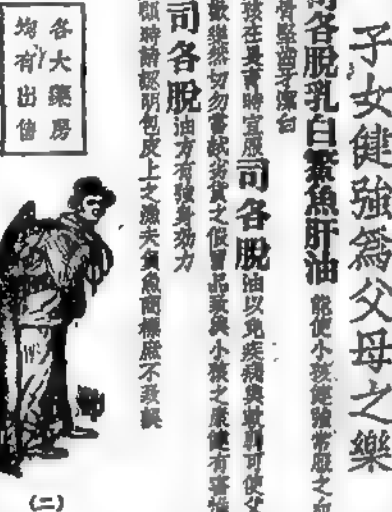 子女健強為父母之樂
司各脫乳白鰵魚肝油 能使小孩經強常服之
骨堅齒牙潔白
孩在長育時宜服司各脫油以免疾病與軟弱可使父
歡樂然切勿嘗試劣貨之假冒品致與小孩之康健有害惟
司各脫油方有強身効力
即時請認明包皮上之漁夫負魚商標庶不致誤
各大藥房
均有出售
(二)